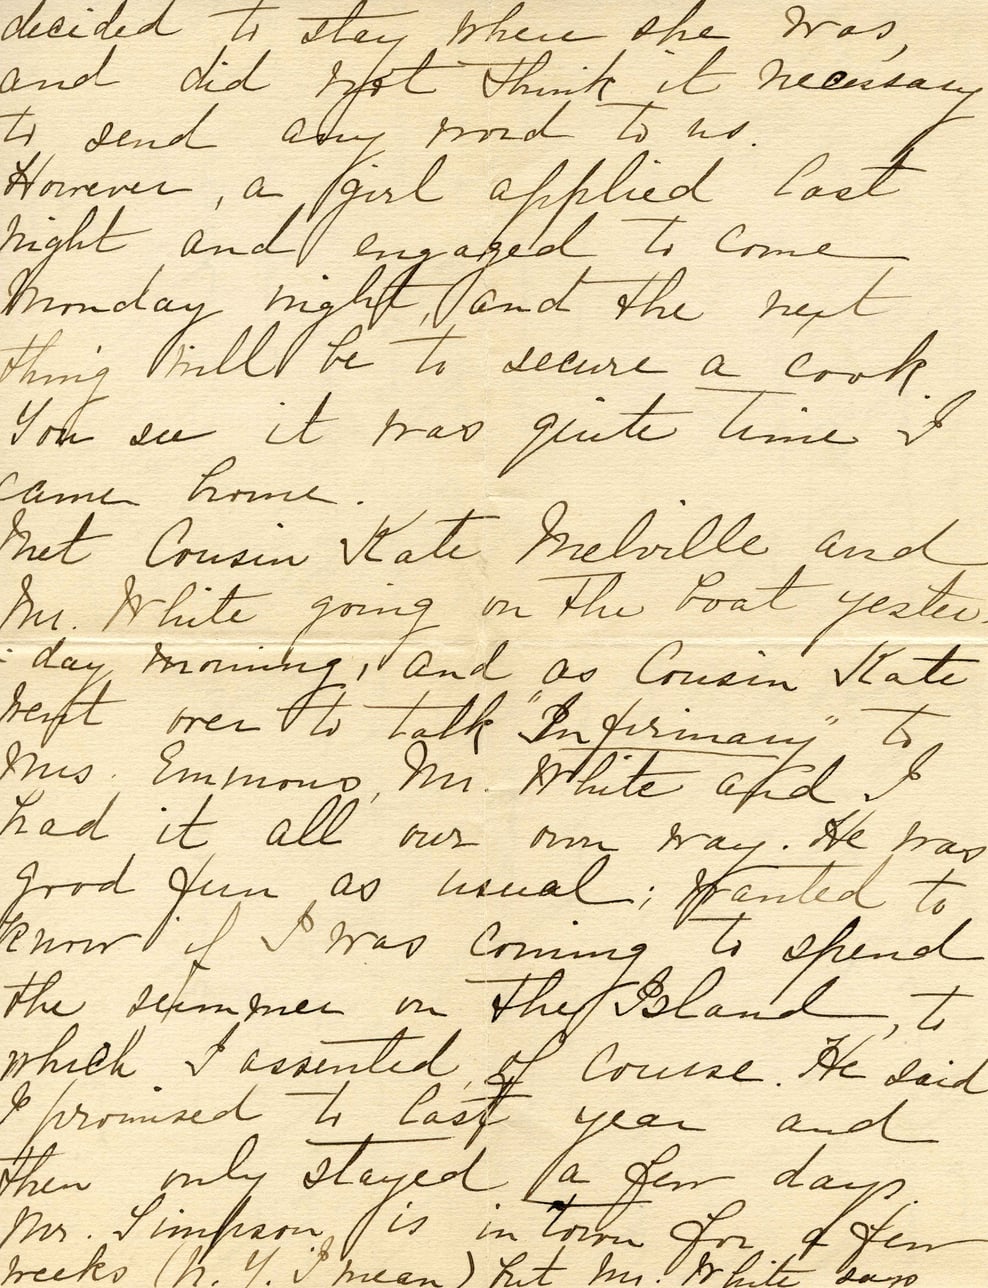 decided to stay where she was,
and did not think it necessary
to send any word to us.
However, a girl applied last
night and engaged to come
Monday night, and the next
thing will be to secure a cook.
You see it was quite time I
came home.
Met Cousin Kate Melville and
Mr. White going on the boat yester-
-day morning, and as Cousin Kate
went over to talk "Infirmary" to
Mrs. Emmons, Mr. White and I
had it all our own way. He was
good fun as usual; wanted to
know if I was coming to spend
the summer on the Island, to
which I assented, of course. He said
I promised to last year and
then only stayed a few days.
Mr. Simpson is in town for a few
weeks (N. Y. I mean) but Mr. White says